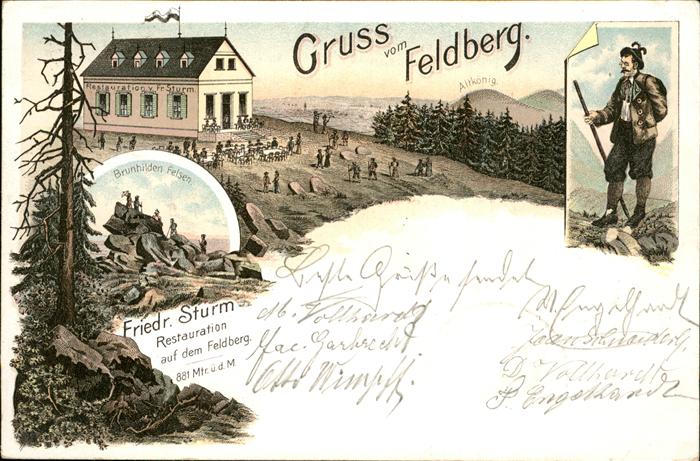 Gruss vom Feldberg.
Altkönig.
Restauration v. Fr. Sturm.
Brunhilden Felsen
Friedr. Sturm
Restauration
auf dem Feldberg.
881 Mtr. ü. d. M
Beste Grüße sendet
M. Vollhardt
Jac. Garbrecht
Otto Wimpff.
Engelhardt
D. Vollhardt
P. Engelhardt